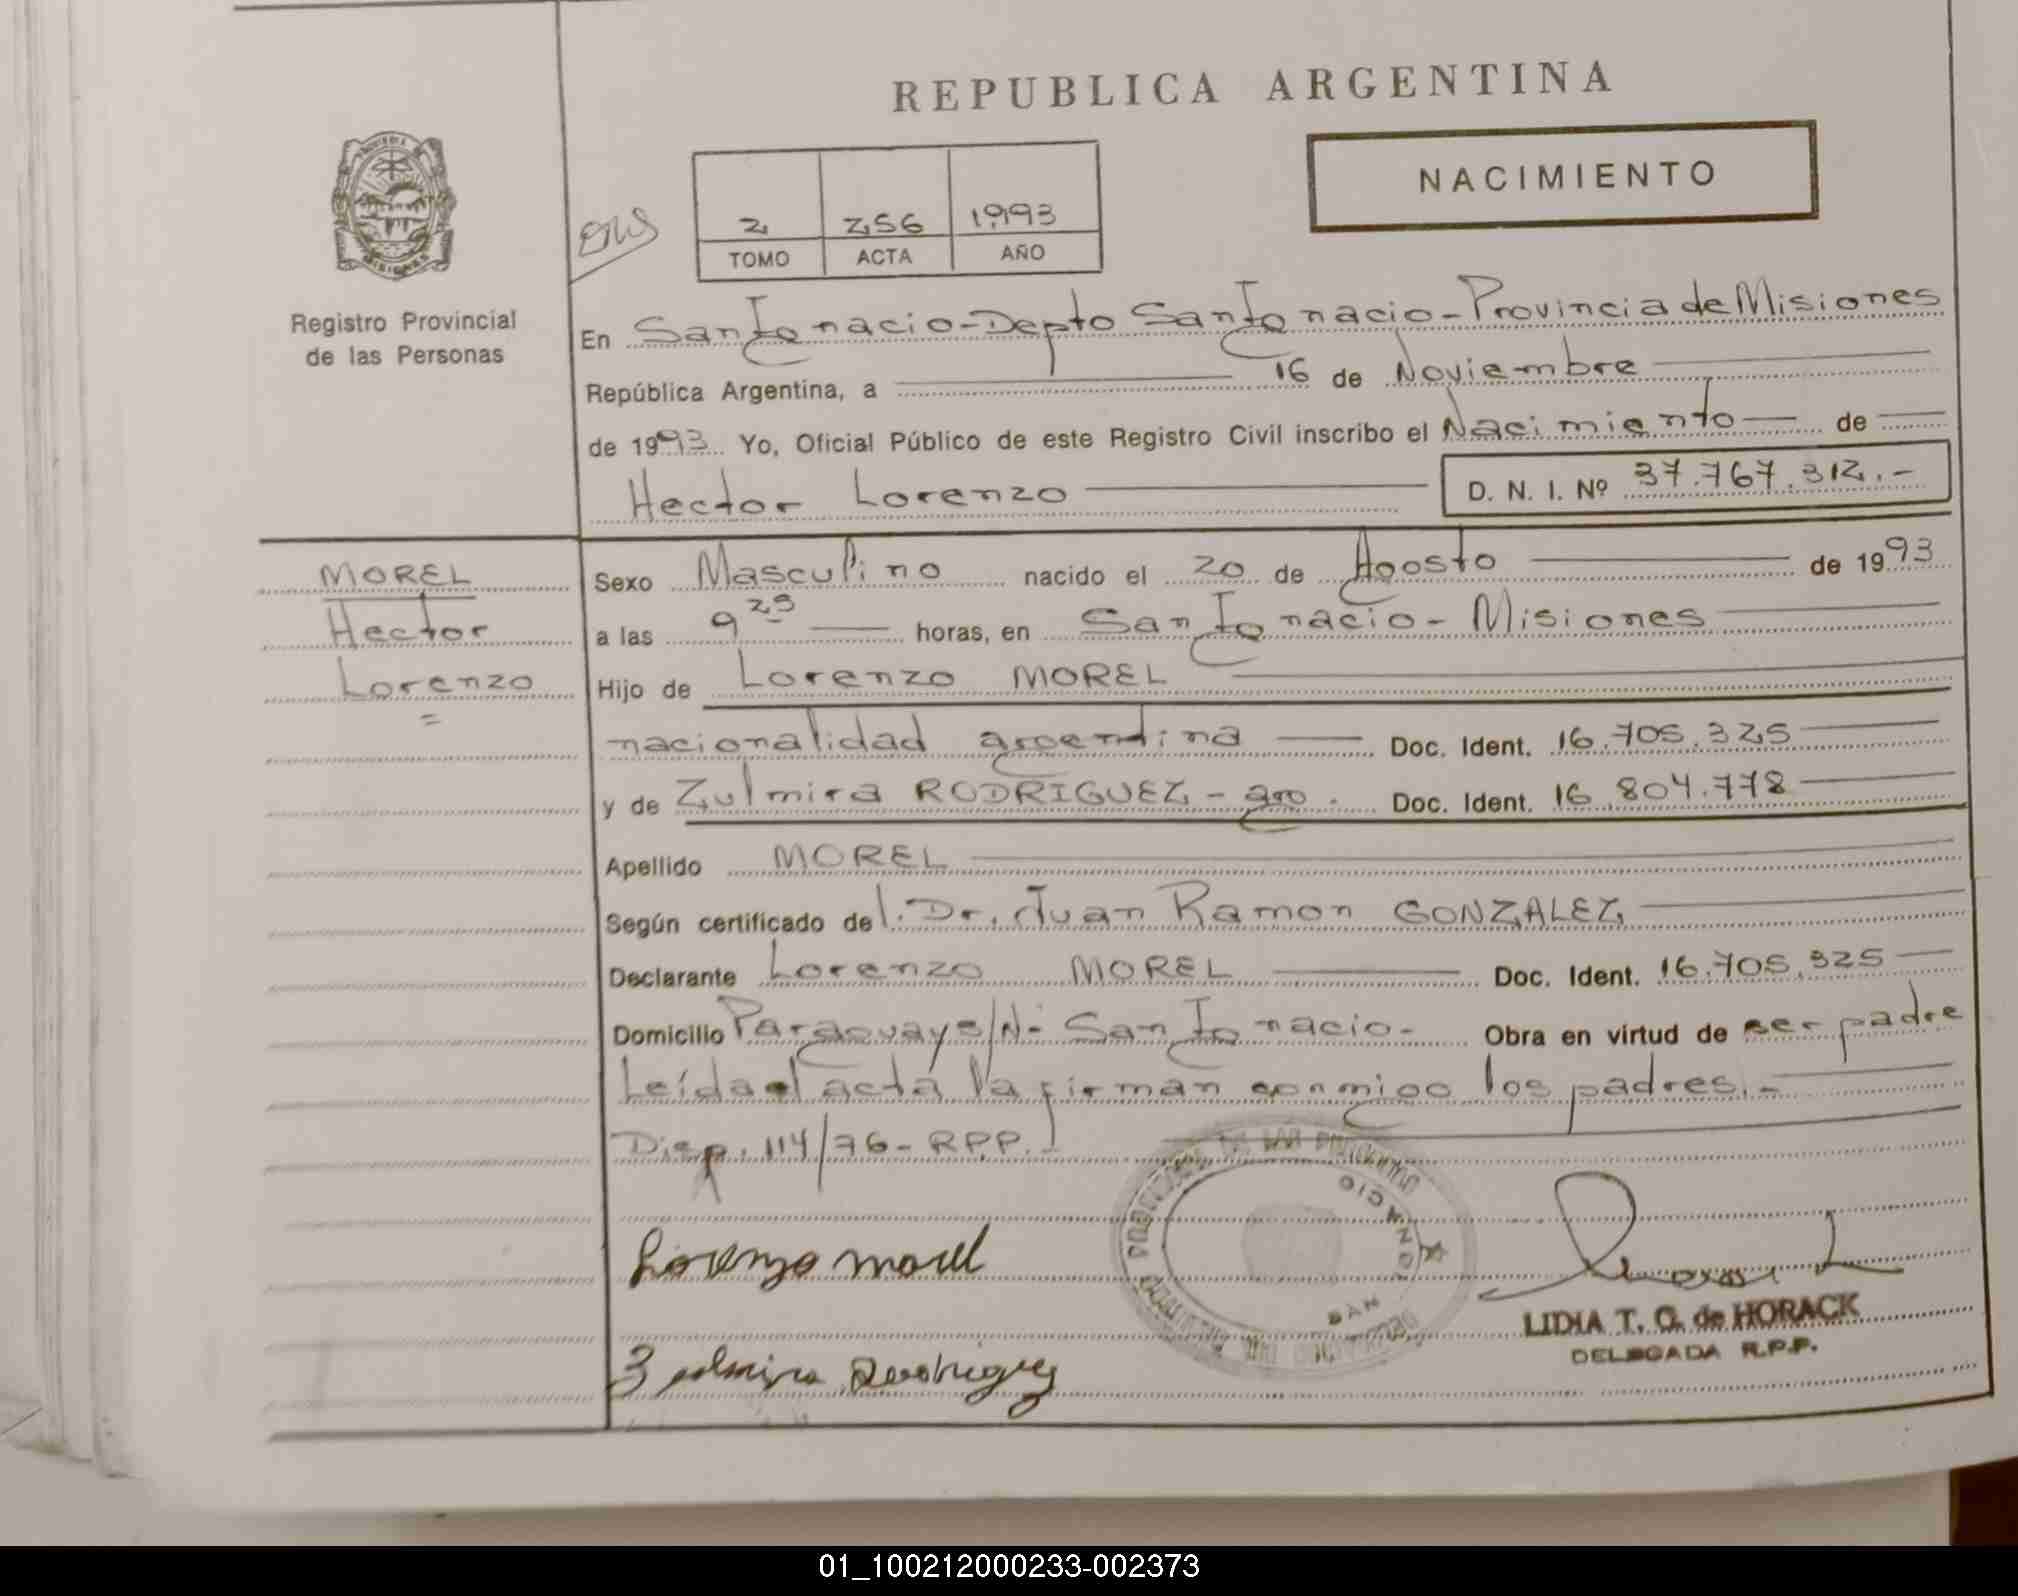 REPUBLICA ARGENTINA
NACIMIENTO
2 256 1993
TOMO ACTA AÑO
Registro Provincial
de las Personas
En San Ignacio - Depto San Ignacio - Provincia de Misiones
República Argentina, a 16 de Noviembre
de 1993 Yo, Oficial Público de este Registro Civil inscribo el Nacimiento de
Hector Lorenzo D. N. I. Nº 37.767.312.-
MOREL
Hector
Lorenzo
=
Sexo Masculino nacido el 20 de Agosto de 1993
a las 9 25 horas, en San Ignacio - Misiones
Hijo de Lorenzo MOREL
nacionalidad argentina Doc. Ident. 16.705.325
y de Zulmira RODRIGUEZ - arg. Doc. Ident. 16.804.778
Apellido MOREL
Según certificado del. Dr. Juan Ramon GONZALEZ
Declarante Lorenzo MOREL Doc. Ident. 16.705.325
Domicilio Paraguay s/N- San Ignacio- Obra en virtud de ser padre
Leída el acta la firman conmigo los padres.-
Disp. 114/76 - R.P.P.
Lorenzo morel
Zulmira Rodriguez
SAN IGNACIO
LIDIA T. G. de HORACK
DELEGADA R.P.P.
01_100212000233-002373